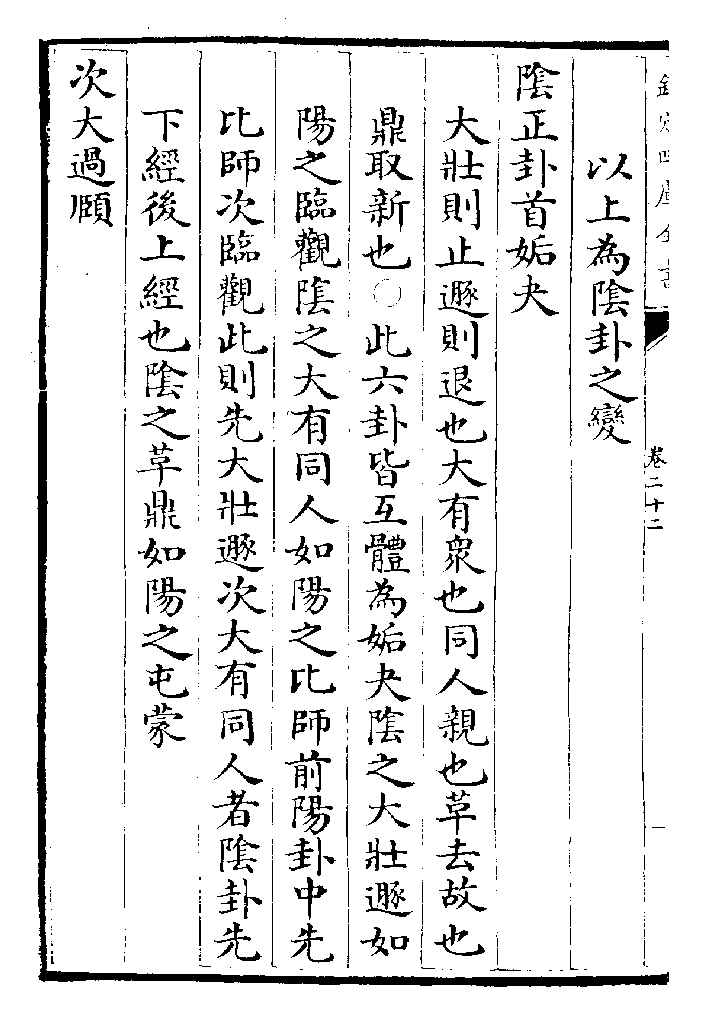 欽定四庫全書
卷二十二
以上為陰卦之變
陰正卦首姤夬
大壯則止遯則退也大有衆也同人親也革去故也
鼎取新也○此六卦皆互體為姤夬陰之大壯遯如
陽之臨觀陰之大有同人如陽之比師前陽卦中先
比師次臨觀此則先大壯遯次大有同人者陰卦先
下經後上經也陰之革鼎如陽之屯蒙
次大過頤